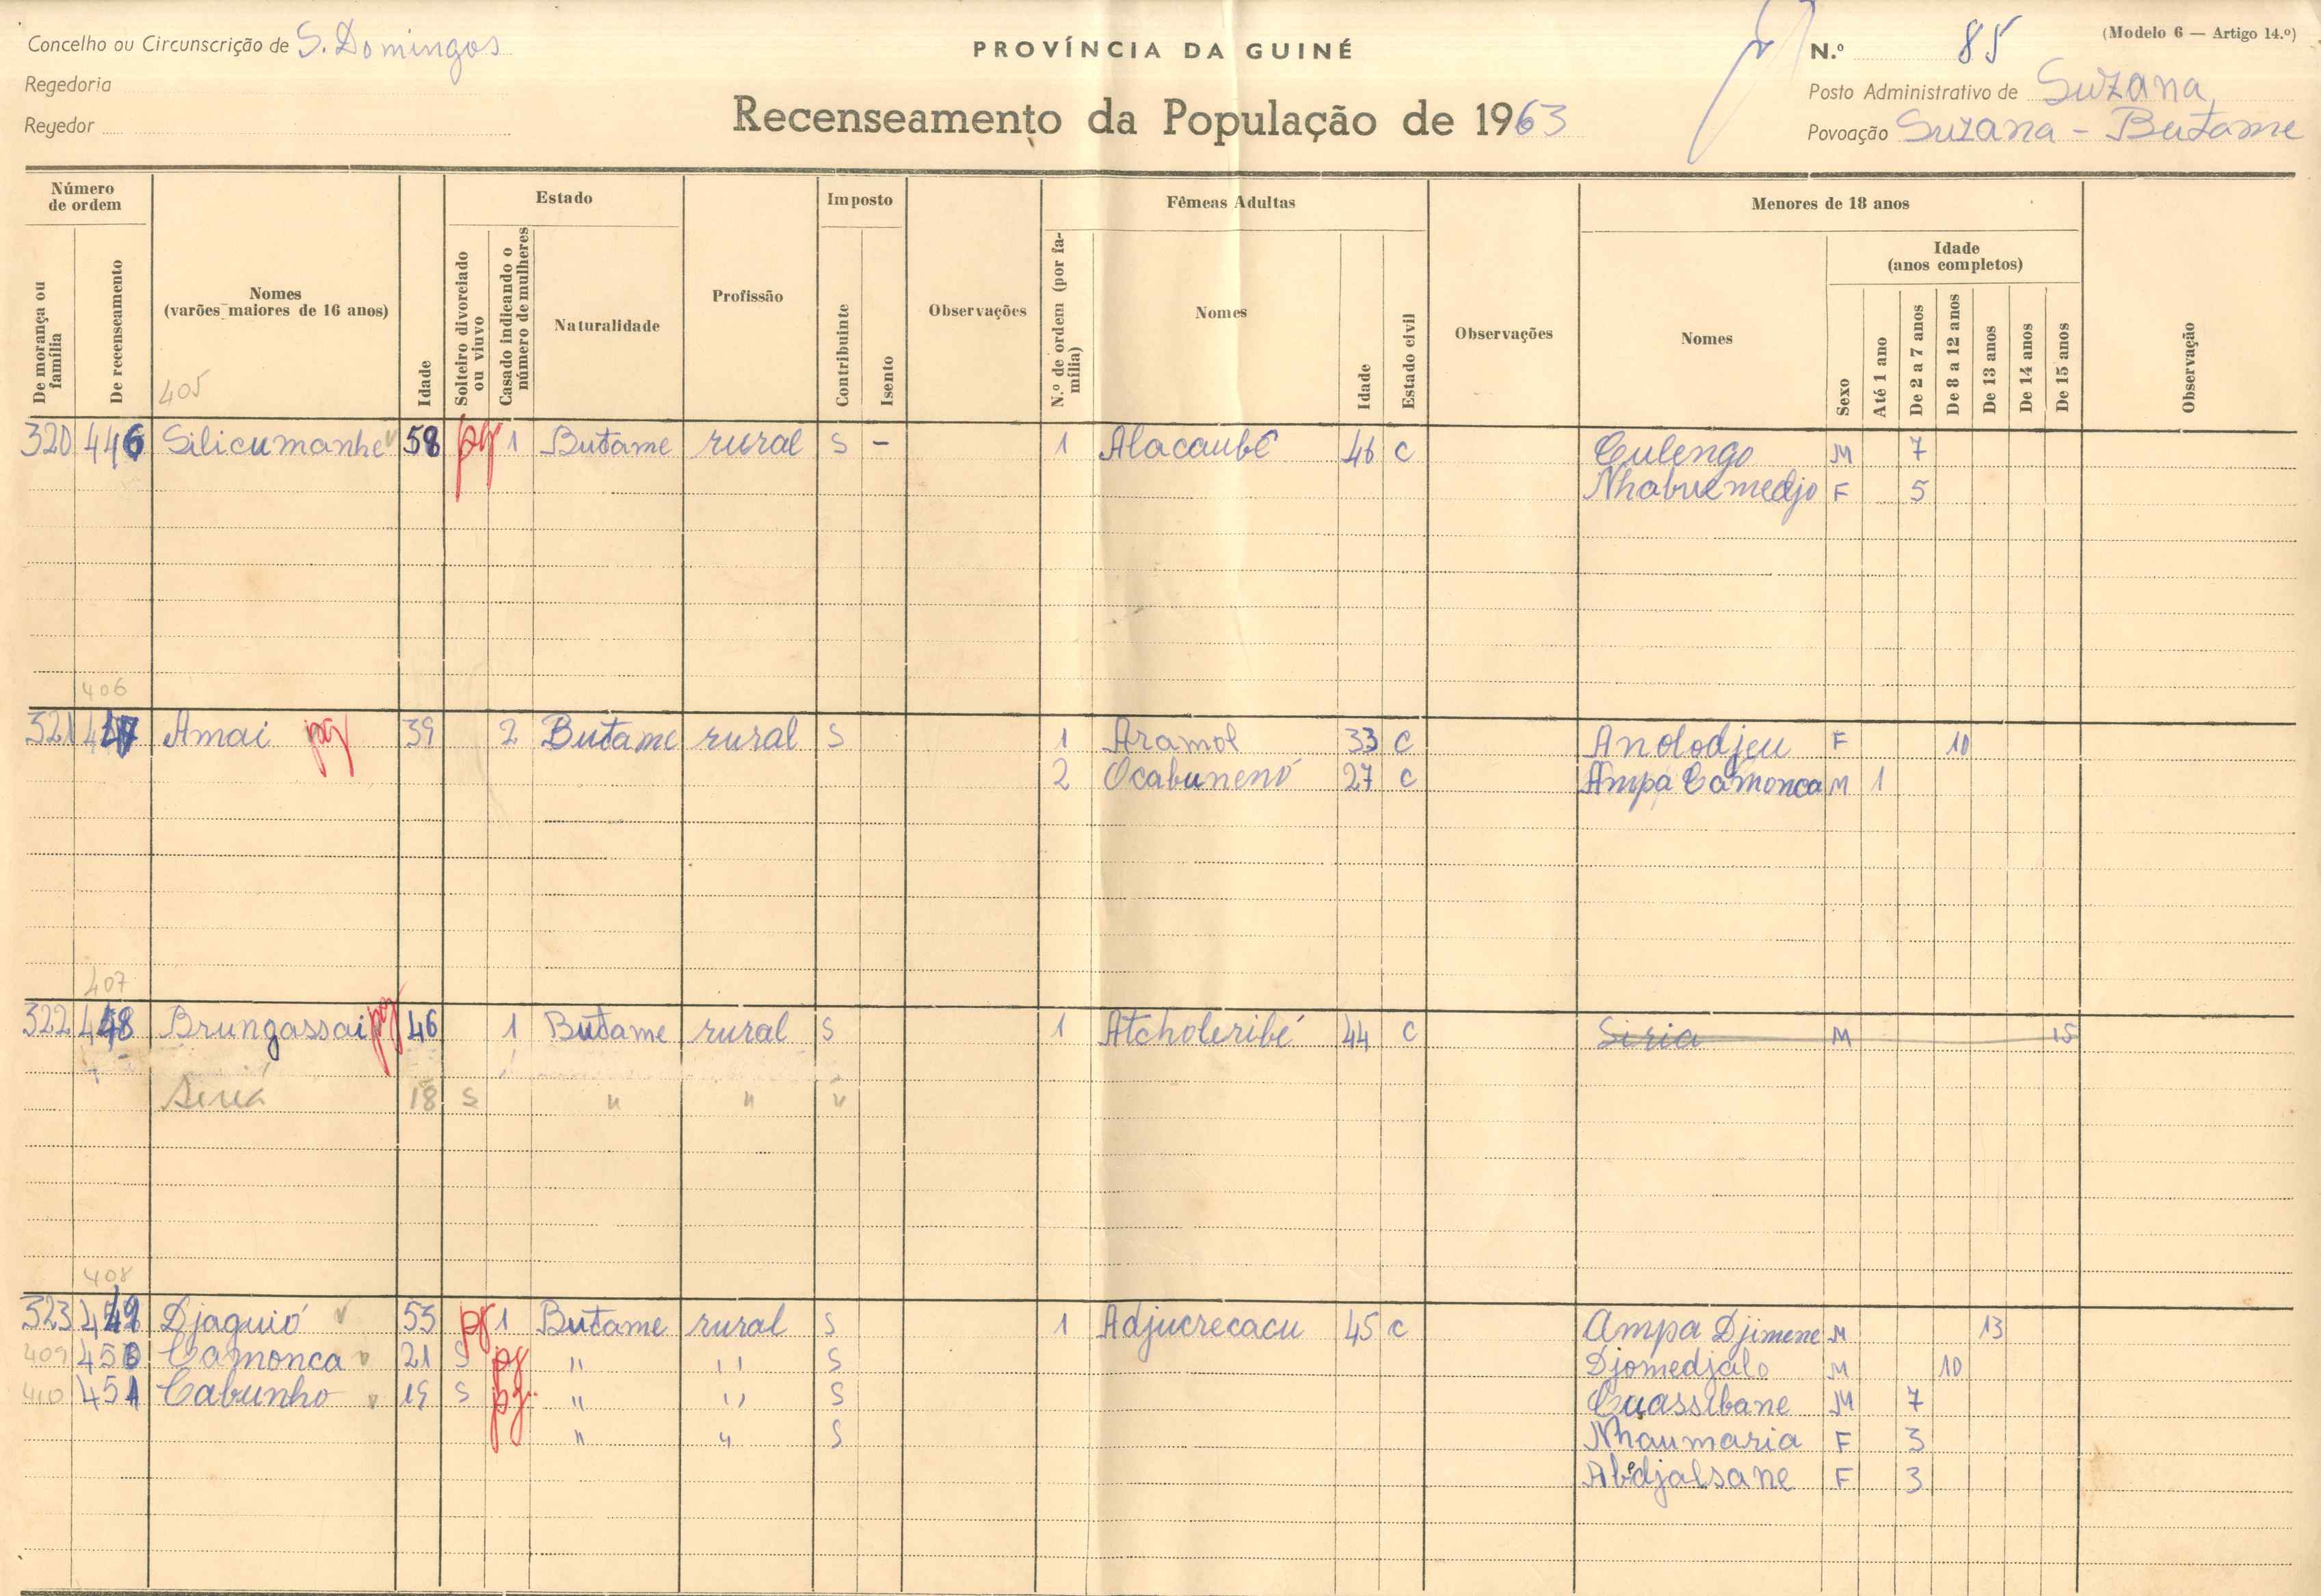 Concelho ou Circunscrição de S. Domingos
Regedoria
Reyedor
PROVÍNCIA DA GUINÉ
Recenseamento da População de 1963
(Modelo 6 — Artigo 14.º)
N.º 85
Posto Administrativo de Suzana
Povoação Suzana - Butame
Número de ordem
De morança ou família
De recenseamento
Nomes
(varões maiores de 16 anos)
405
Idade
Estado
Solteiro divorciado ou viuvo
Casado indicando o número de mulheres
Naturalidade
Profissão
Imposto
Contribuinte
Isento
Observações
Fêmeas Adultas
N.º de ordem (por família)
Nomes
Idade
Estado civil
Observações
Menores de 18 anos
Nomes
Sexo
Idade
(anos completos)
Até 1 ano
De 2 a 7 anos
De 8 a 12 anos
De 13 anos
De 14 anos
De 15 anos
Observação
320 446 Silicumanhe 58 pg 1 Butame rural S - 1 Alacaubê 46 C Culengo M 7
Nhabuemedjo F 5
406
321 447 Amai pg 39 2 Butame rural S 1 Aramol 33 C Anolodjeu F 10
2 Ocabunenó 27 C Ampa Camonca M 1
407
322 448 Brungassai pg 46 1 Butame rural S 1 Atcholeribé 44 C Siria M 15
Siriá 18 S " " "
408
323 449 Djaguió 55 pg 1 Butame rural S 1 Adjucrecacu 45 C Ampa Djimene M 13
409 450 Camonca 21 S pg " " S Djomedjalo M 10
410 451 Cabunho 19 S pg " " S Cuassibane M 7
" " S Nhaumaria F 3
Abedjalsane F 3